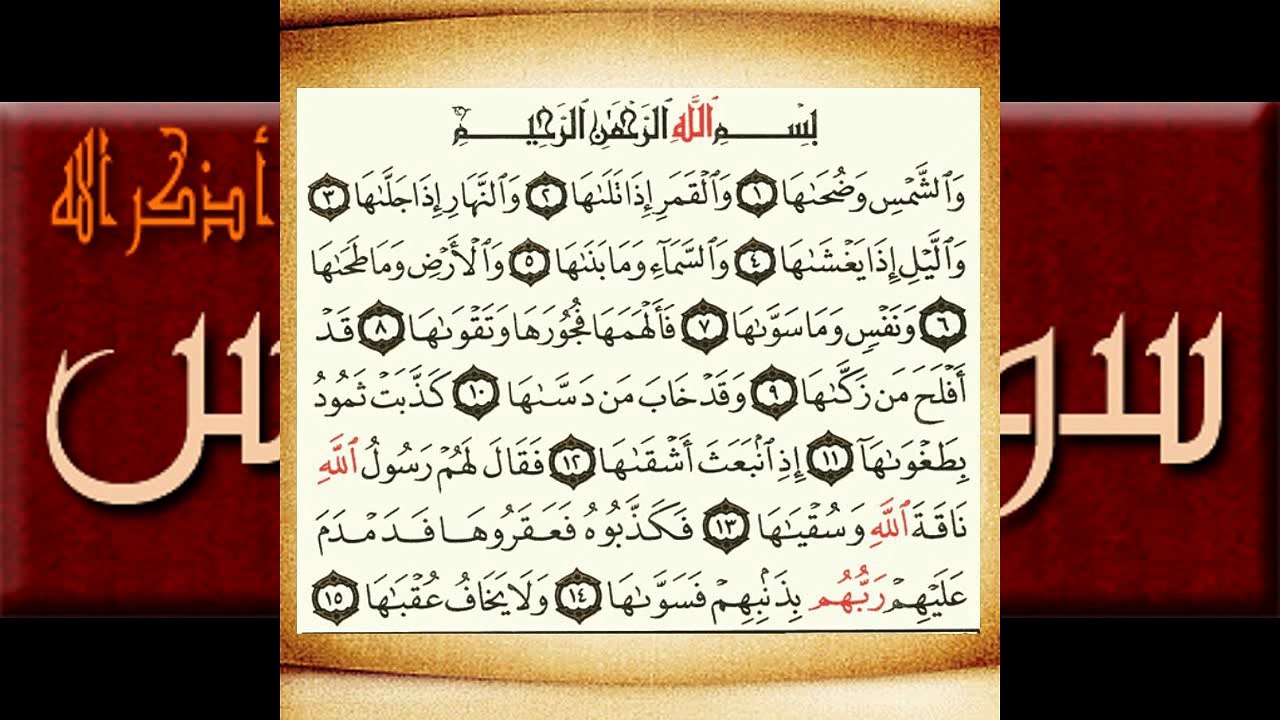 أذكر الله
بِسْمِ ٱللَّهِ ٱلرَّحْمَٰنِ ٱلرَّحِيمِ
وَٱلشَّمْسِ وَضُحَىٰهَا ١ وَٱلْقَمَرِ إِذَا تَلَىٰهَا ٢ وَٱلنَّهَارِ إِذَا جَلَّىٰهَا ٣
وَٱلَّيْلِ إِذَا يَغْشَىٰهَا ٤ وَٱلسَّمَآءِ وَمَا بَنَىٰهَا ٥ وَٱلْأَرْضِ وَمَا طَحَىٰهَا
٦ وَنَفْسٍ وَمَا سَوَّىٰهَا ٧ فَأَلْهَمَهَا فُجُورَهَا وَتَقْوَىٰهَا ٨ قَدْ
أَفْلَحَ مَن زَكَّىٰهَا ٩ وَقَدْ خَابَ مَن دَسَّىٰهَا ١٠ كَذَّبَتْ ثَمُودُ
بِطَغْوَىٰهَآ ١١ إِذِ ٱنۢبَعَثَ أَشْقَىٰهَا ١٢ فَقَالَ لَهُمْ رَسُولُ ٱللَّهِ
نَاقَةَ ٱللَّهِ وَسُقْيَٰهَا ١٣ فَكَذَّبُوهُ فَعَقَرُوهَا فَدَمْدَمَ
عَلَيْهِمْ رَبُّهُم بِذَنۢبِهِمْ فَسَوَّىٰهَا ١٤ وَلَا يَخَافُ عُقْبَٰهَا ١٥